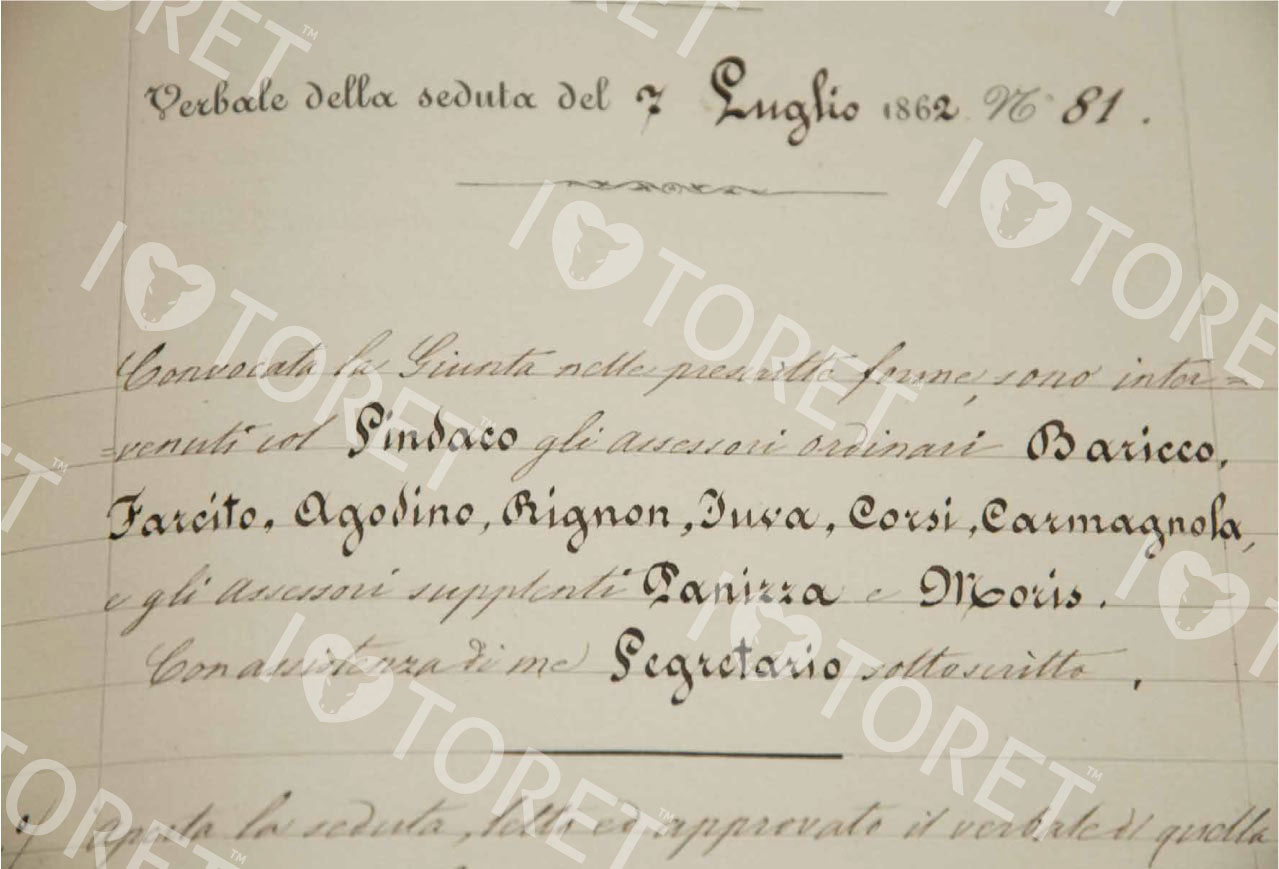 Verbale della seduta del 7 Luglio 1862 N° 81.
Convocata la Giunta nelle prescritte forme, sono inter=
=venuti col Sindaco gli assessori ordinari Baricco,
Farcito, Agodino, Rignon, Juva, Corsi, Carmagnola,
e gli assessori supplenti Panizza e Moris.
Con assistenza di me Segretario sottoscritto,
Aperta la seduta, letto ed approvato il verbale di quella
I TORET™
I TORET™
I TORET™
I TORET™
I TORET™
I TORET™